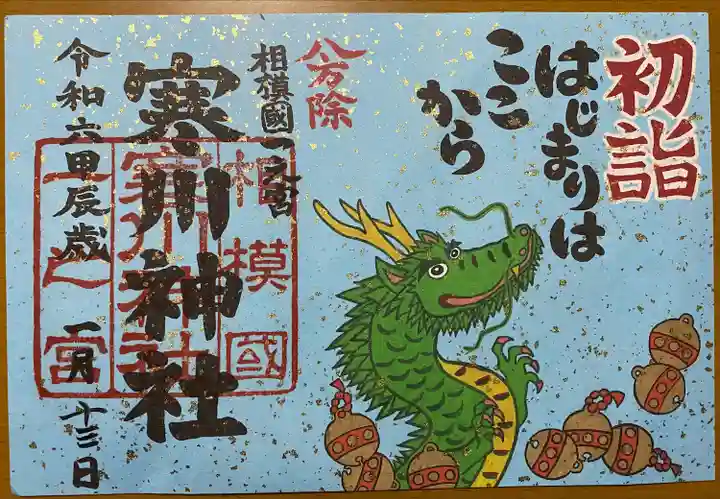 初詣
はじまりは
ここ
から
八方除
相模國一之宮
寒川神社
相模國
寒川神社
一之宮
令和六甲辰歳 一月 十三日